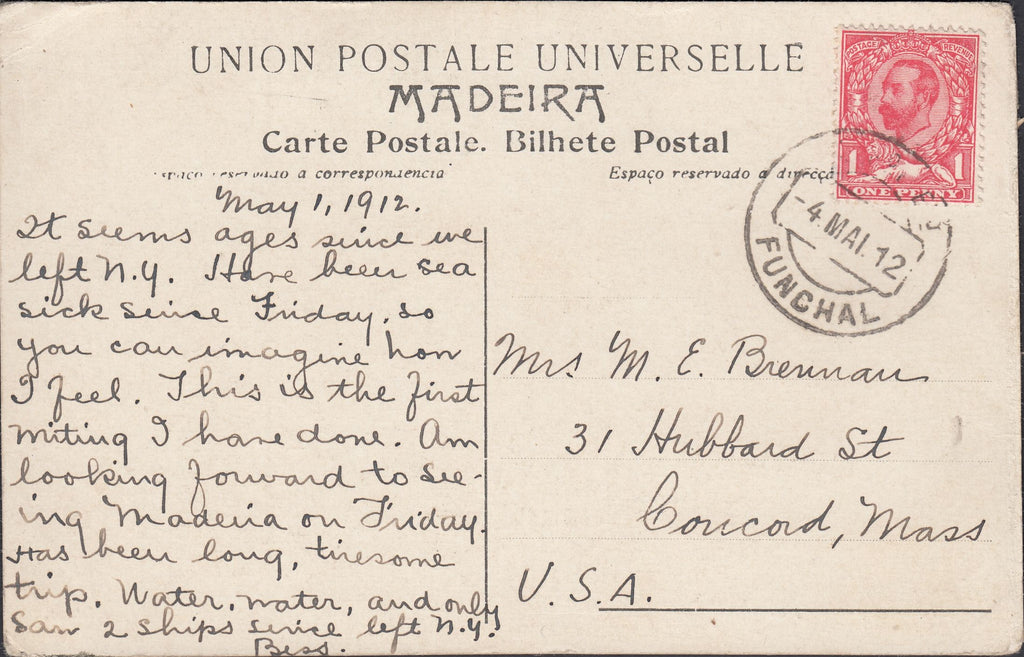 UNION POSTALE UNIVERSELLE
MADEIRA
Carte Postale. Bilhete Postal
a correspondencia
Espaço reservado a direcçã
POSTAGE REVENUE
1 1
ONE PENNY
-4.MAI.12
FUNCHAL
May 1, 1912.
It seems ages since we
left N.Y. Have been sea
sick since Friday, so
you can imagine how
I feel. This is the first
writing I have done. Am
looking forward to see-
ing Madeira on Friday.
Has been long, tiresome
trip. Water, water, and only
saw 2 ships since left N.Y.
Bess.
Mrs M. E. Brennan
31 Hubbard St
Concord, Mass
U.S.A.